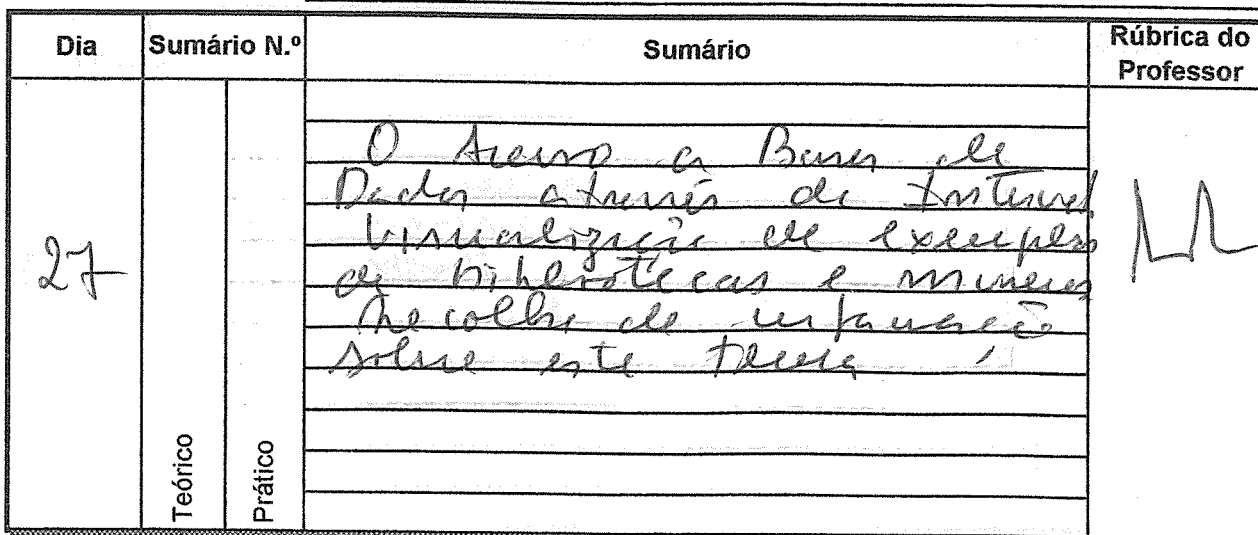 Dia Sumário N.º Sumário Rúbrica do Professor
27
Teórico
Prático
O Acesso a Bases de
Dados através da Internet
Visualização de exemplos
de bibliotecas e museus
Recolha de informação
sobre este tema.